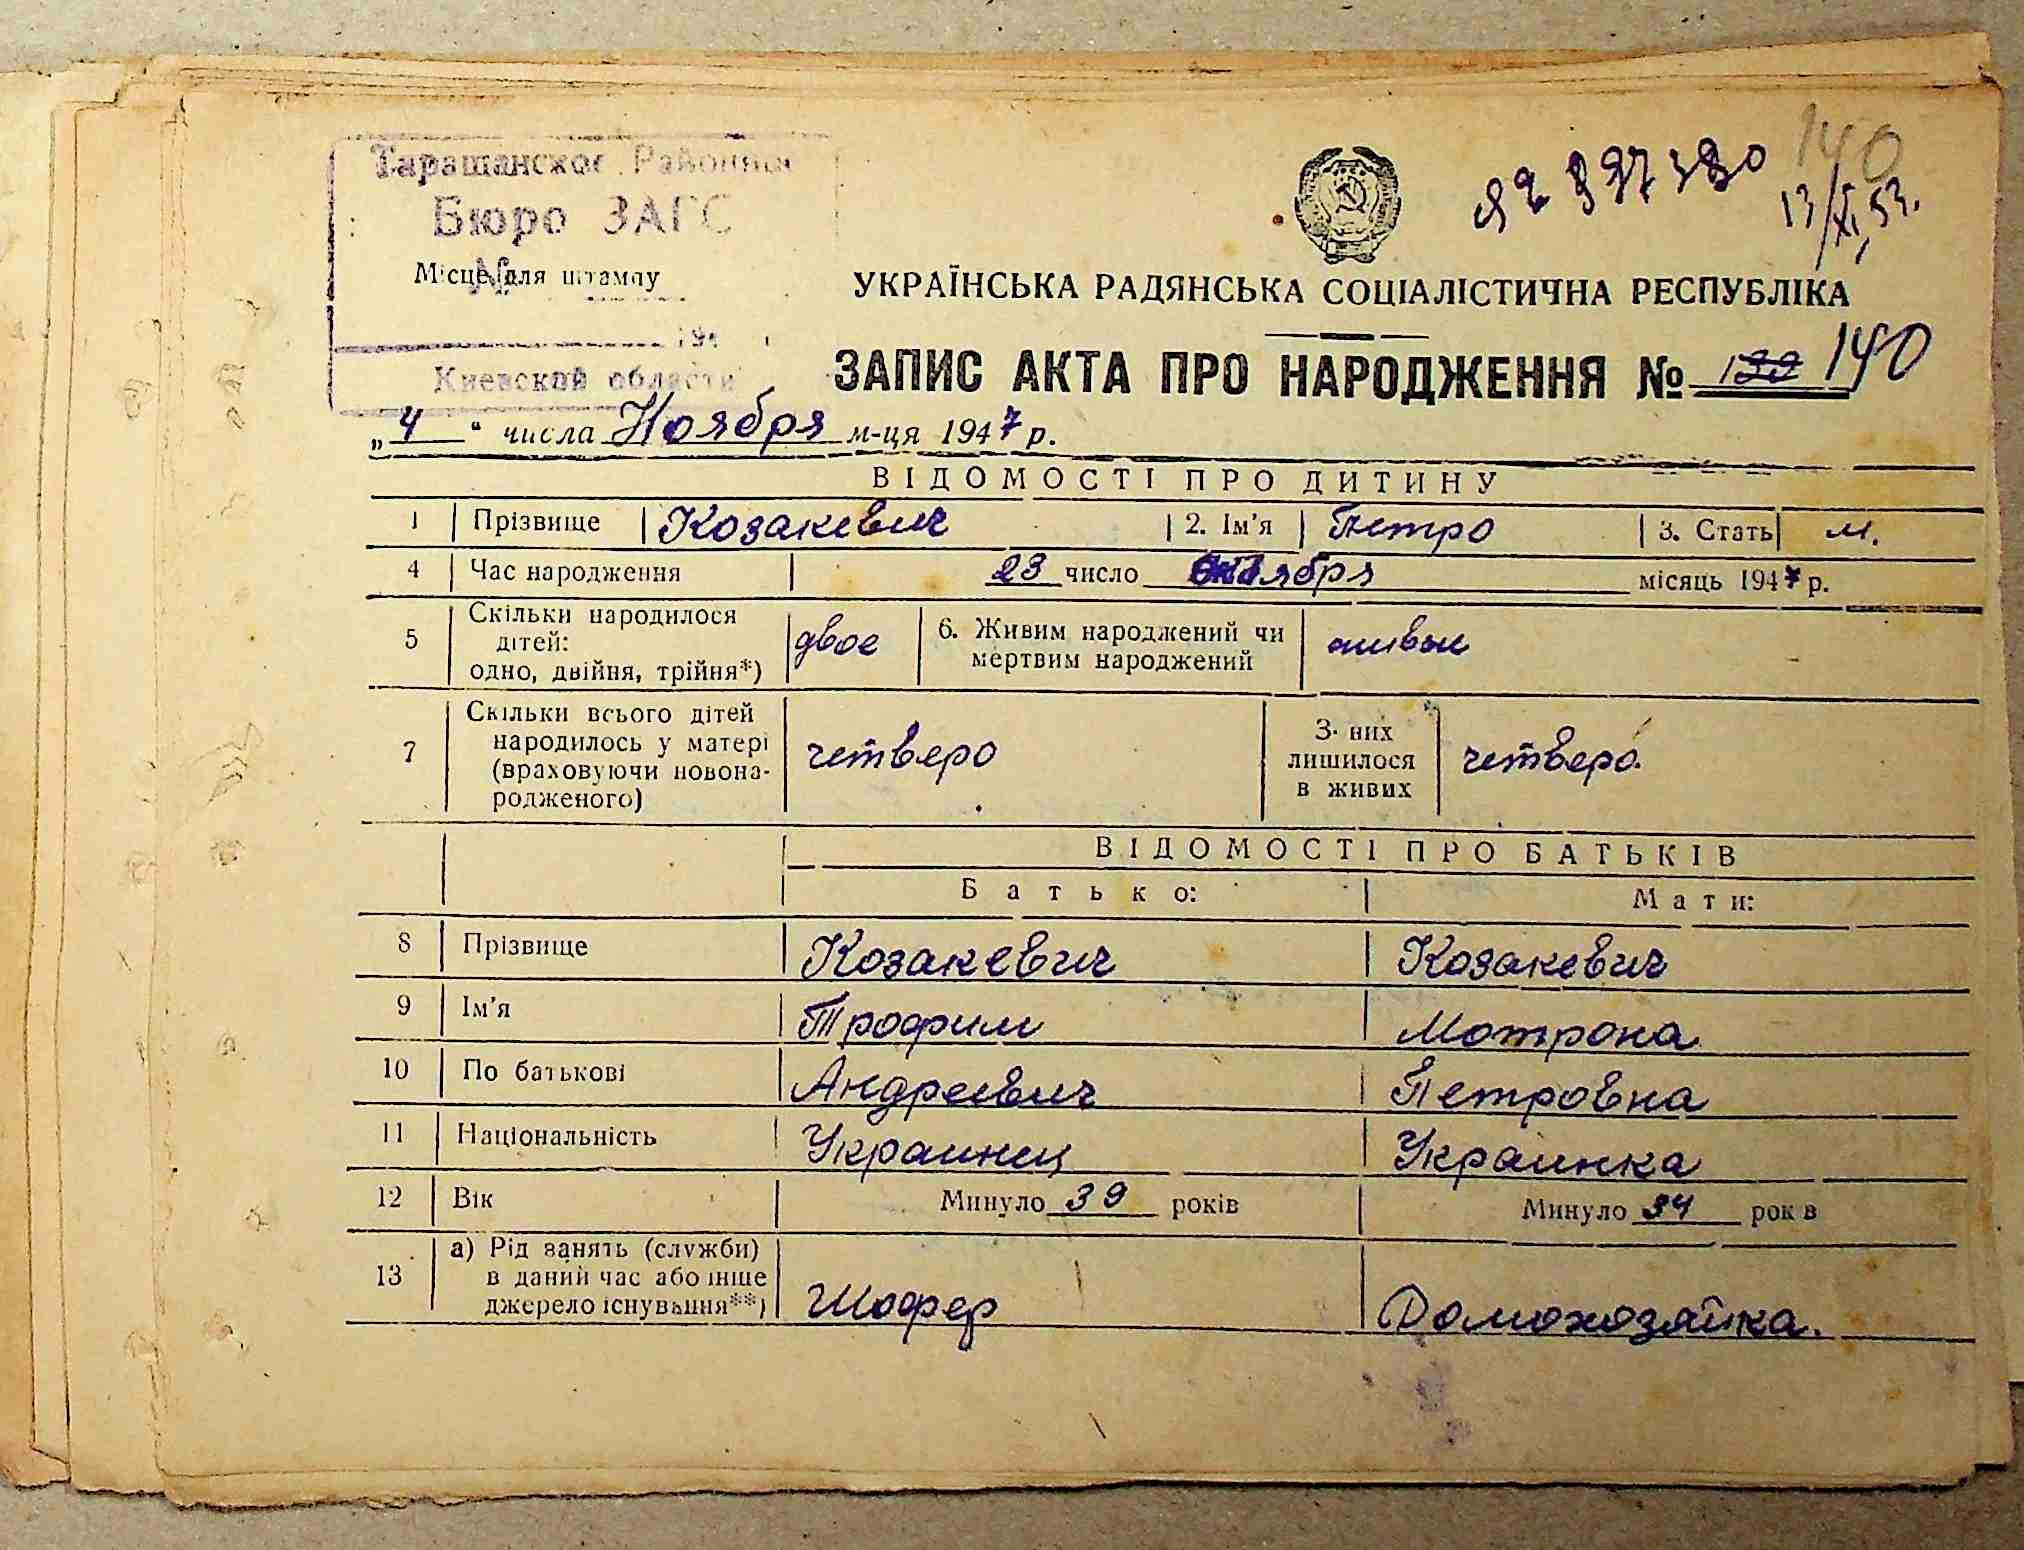 Таращанское Районное
Бюро ЗАГС
Місце для штампу
№
194
Киевской области
140
13/XI, 53.
УКРАЇНСЬКА РАДЯНСЬКА СОЦІАЛІСТИЧНА РЕСПУБЛІКА
ЗАПИС АКТА ПРО НАРОДЖЕННЯ № 140
„4“ числа Ноября м-ця 1947 р.
ВІДОМОСТІ ПРО ДИТИНУ
1 Прізвище Козакевич 2. Ім'я Петро 3. Стать м.
4 Час народження 23 число Октября місяць 1947 р.
5 Скільки народилося дітей: одно, двійня, трійня*) двое 6. Живим народжений чи мертвим народжений живым
7 Скільки всього дітей народилось у матері (враховуючи новонародженого) четверо З них лишилося в живих четверо
ВІДОМОСТІ ПРО БАТЬКІВ
Батько: Мати:
8 Прізвище Козакевич Козакевич
9 Ім'я Трофим Мотрона
10 По батькові Андреевич Петровна
11 Національність Украинец Украинка
12 Вік Минуло 39 років Минуло 34 рок в
13 а) Рід занять (служби) в даний час або інше джерело існування**) Шофер Домохозяйка.